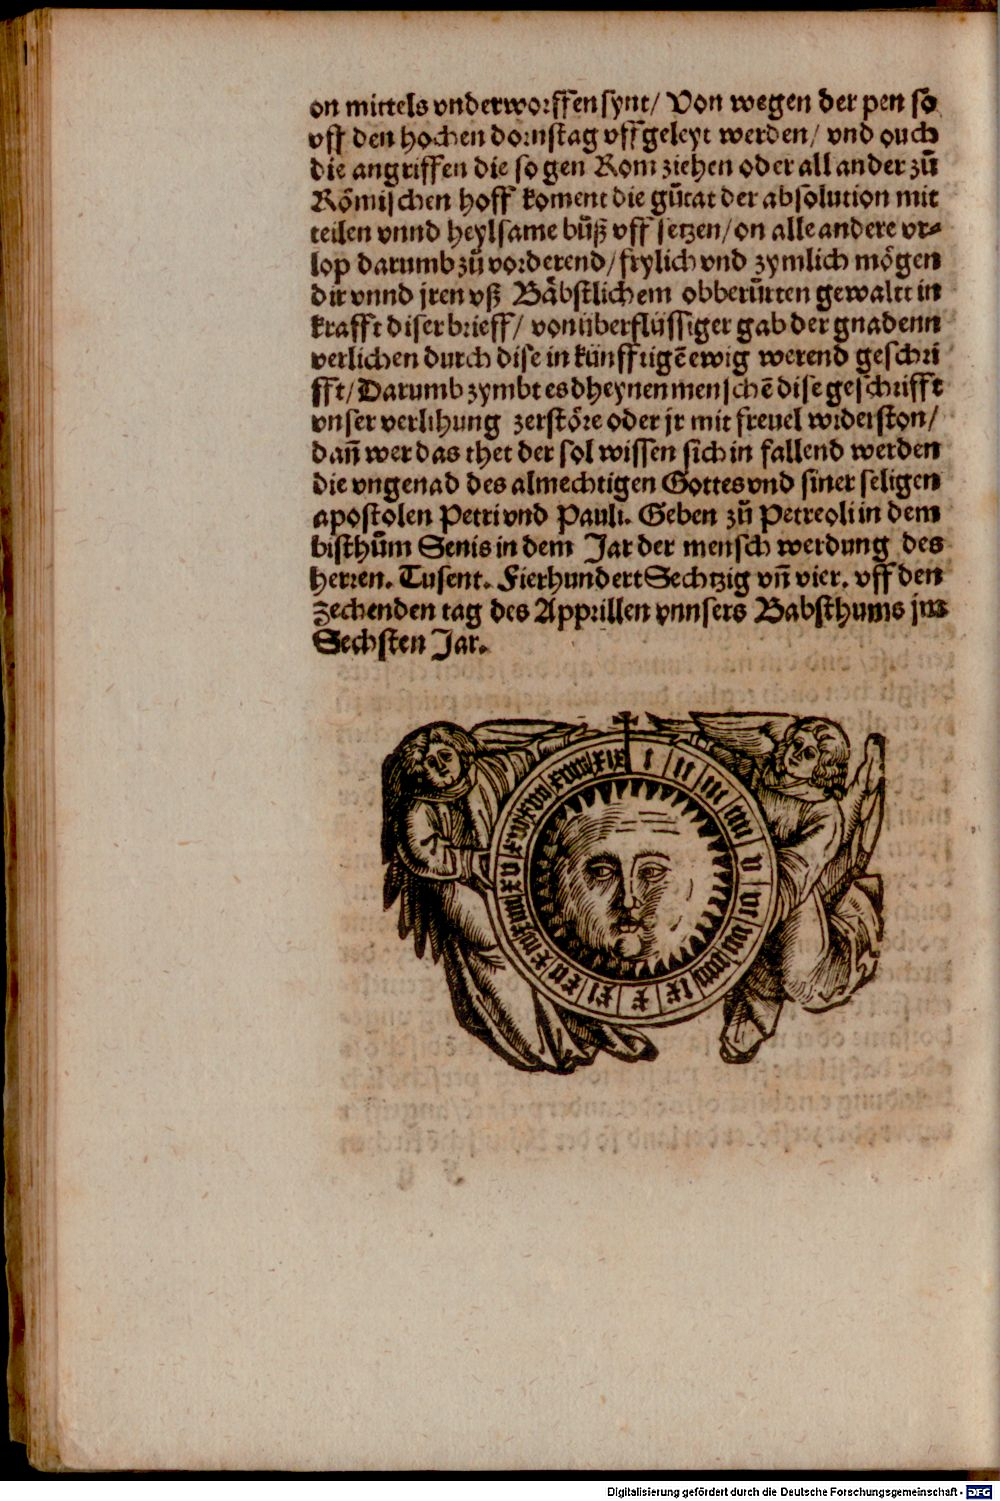 on mittels vnderworffen synt/ Von wegen der pen so
vff den hochen dornstag vffgeleyt werden/ vnd ouch
die angriffen die so gen Rom ziehen oder all ander zů
Römischen hoff koment die gůtat der absolution mit
teilen vnnd heylsame bůß vff setzen/ on alle andere vr⸗
lop darumb zů vorderend/ frylich vnd zymlich mögen
dir vnnd jren vß Bäbstlichem obberůrten gewaltt in
krafft diser brieff/ von überflüssiger gab der gnadenn
verlichen durch dise in künfftigē ewig werend geschri
fft/ Darumb zymbt es dheynen menschē dise geschrifft
vnser verlihung zerstöre oder jr mit freuel widerston/
dañ wer das thet der sol wissen sich in fallend werden
die vngenad des almechtigen Gottes vnd siner seligen
apostolen Petri vnd Pauli. Geben zů Petreoli in dem
bisthům Senis in dem Jar der mensch werdung des
herren. Tusent. Fierhundert Sechtzig vñ vier. vff den
zechenden tag des Apprillen vnnsers Babsthums jm
Sechsten Jar.
I II III IIII V VI VII VIII IX X XI XII XIII XIIII XV XVI XVII XVIII XIX
Digitalisierung gefördert durch die Deutsche Forschungsgemeinschaft - DFG